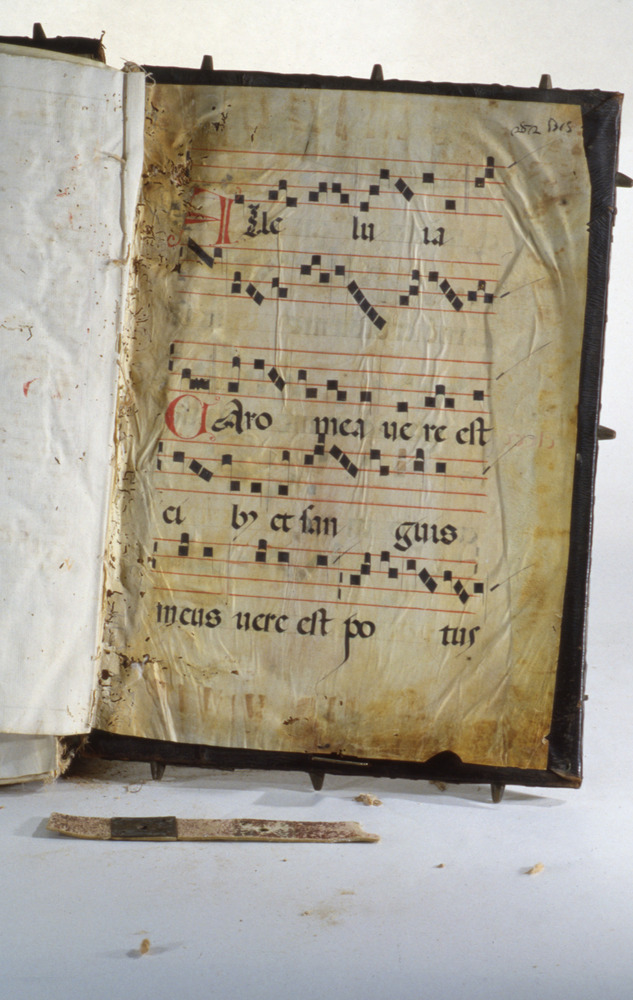 Alle lu ia
Caro mea ue re est
ci by et san guis
meus uere est po tus